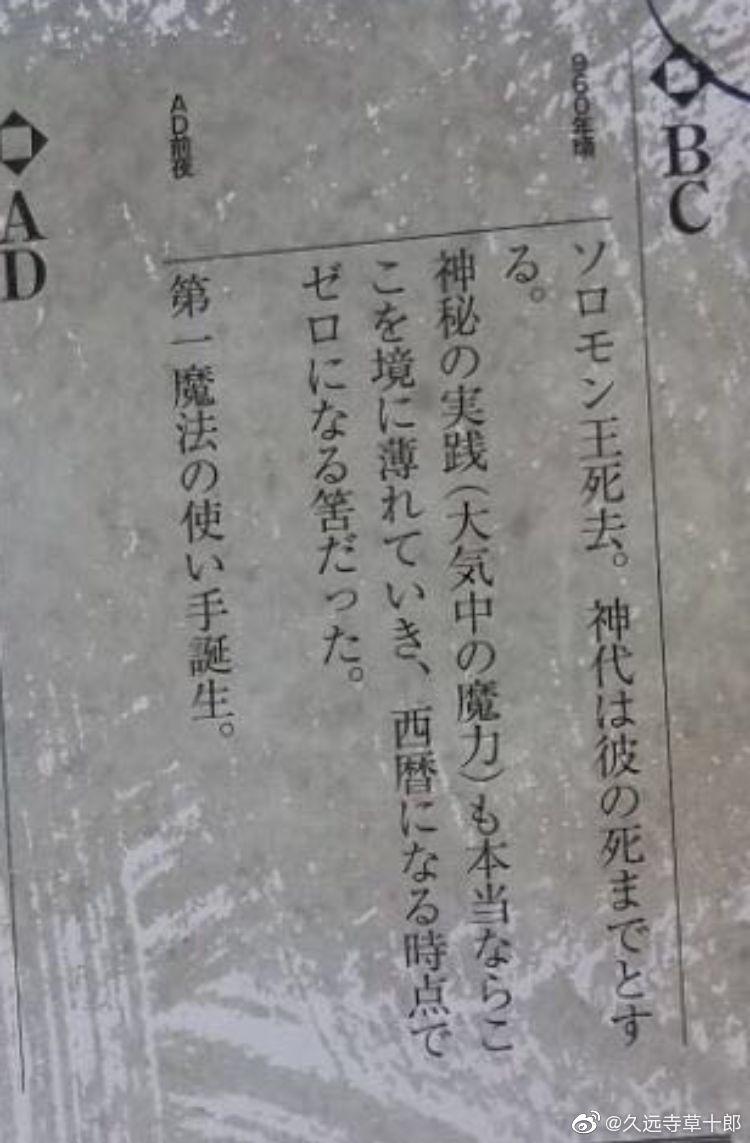 BC
960年頃
ソロモン王死去。神代は彼の死までとす
る。
神秘の実践(大気中の魔力)も本当ならこ
こを境に薄れていき、西暦になる時点で
ゼロになる筈だった。
AD前後
第一魔法の使い手誕生。
AD
@久远寺草十郎